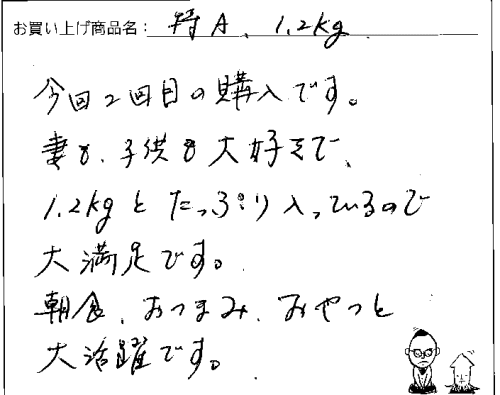 お買い上げ商品名: 特A、1.2kg
今回2回目の購入です。
妻も、子供も大好きで、
1.2kgとたっぷり入っているので
大満足です。
朝食、おつまみ、おやつと
大活躍です。